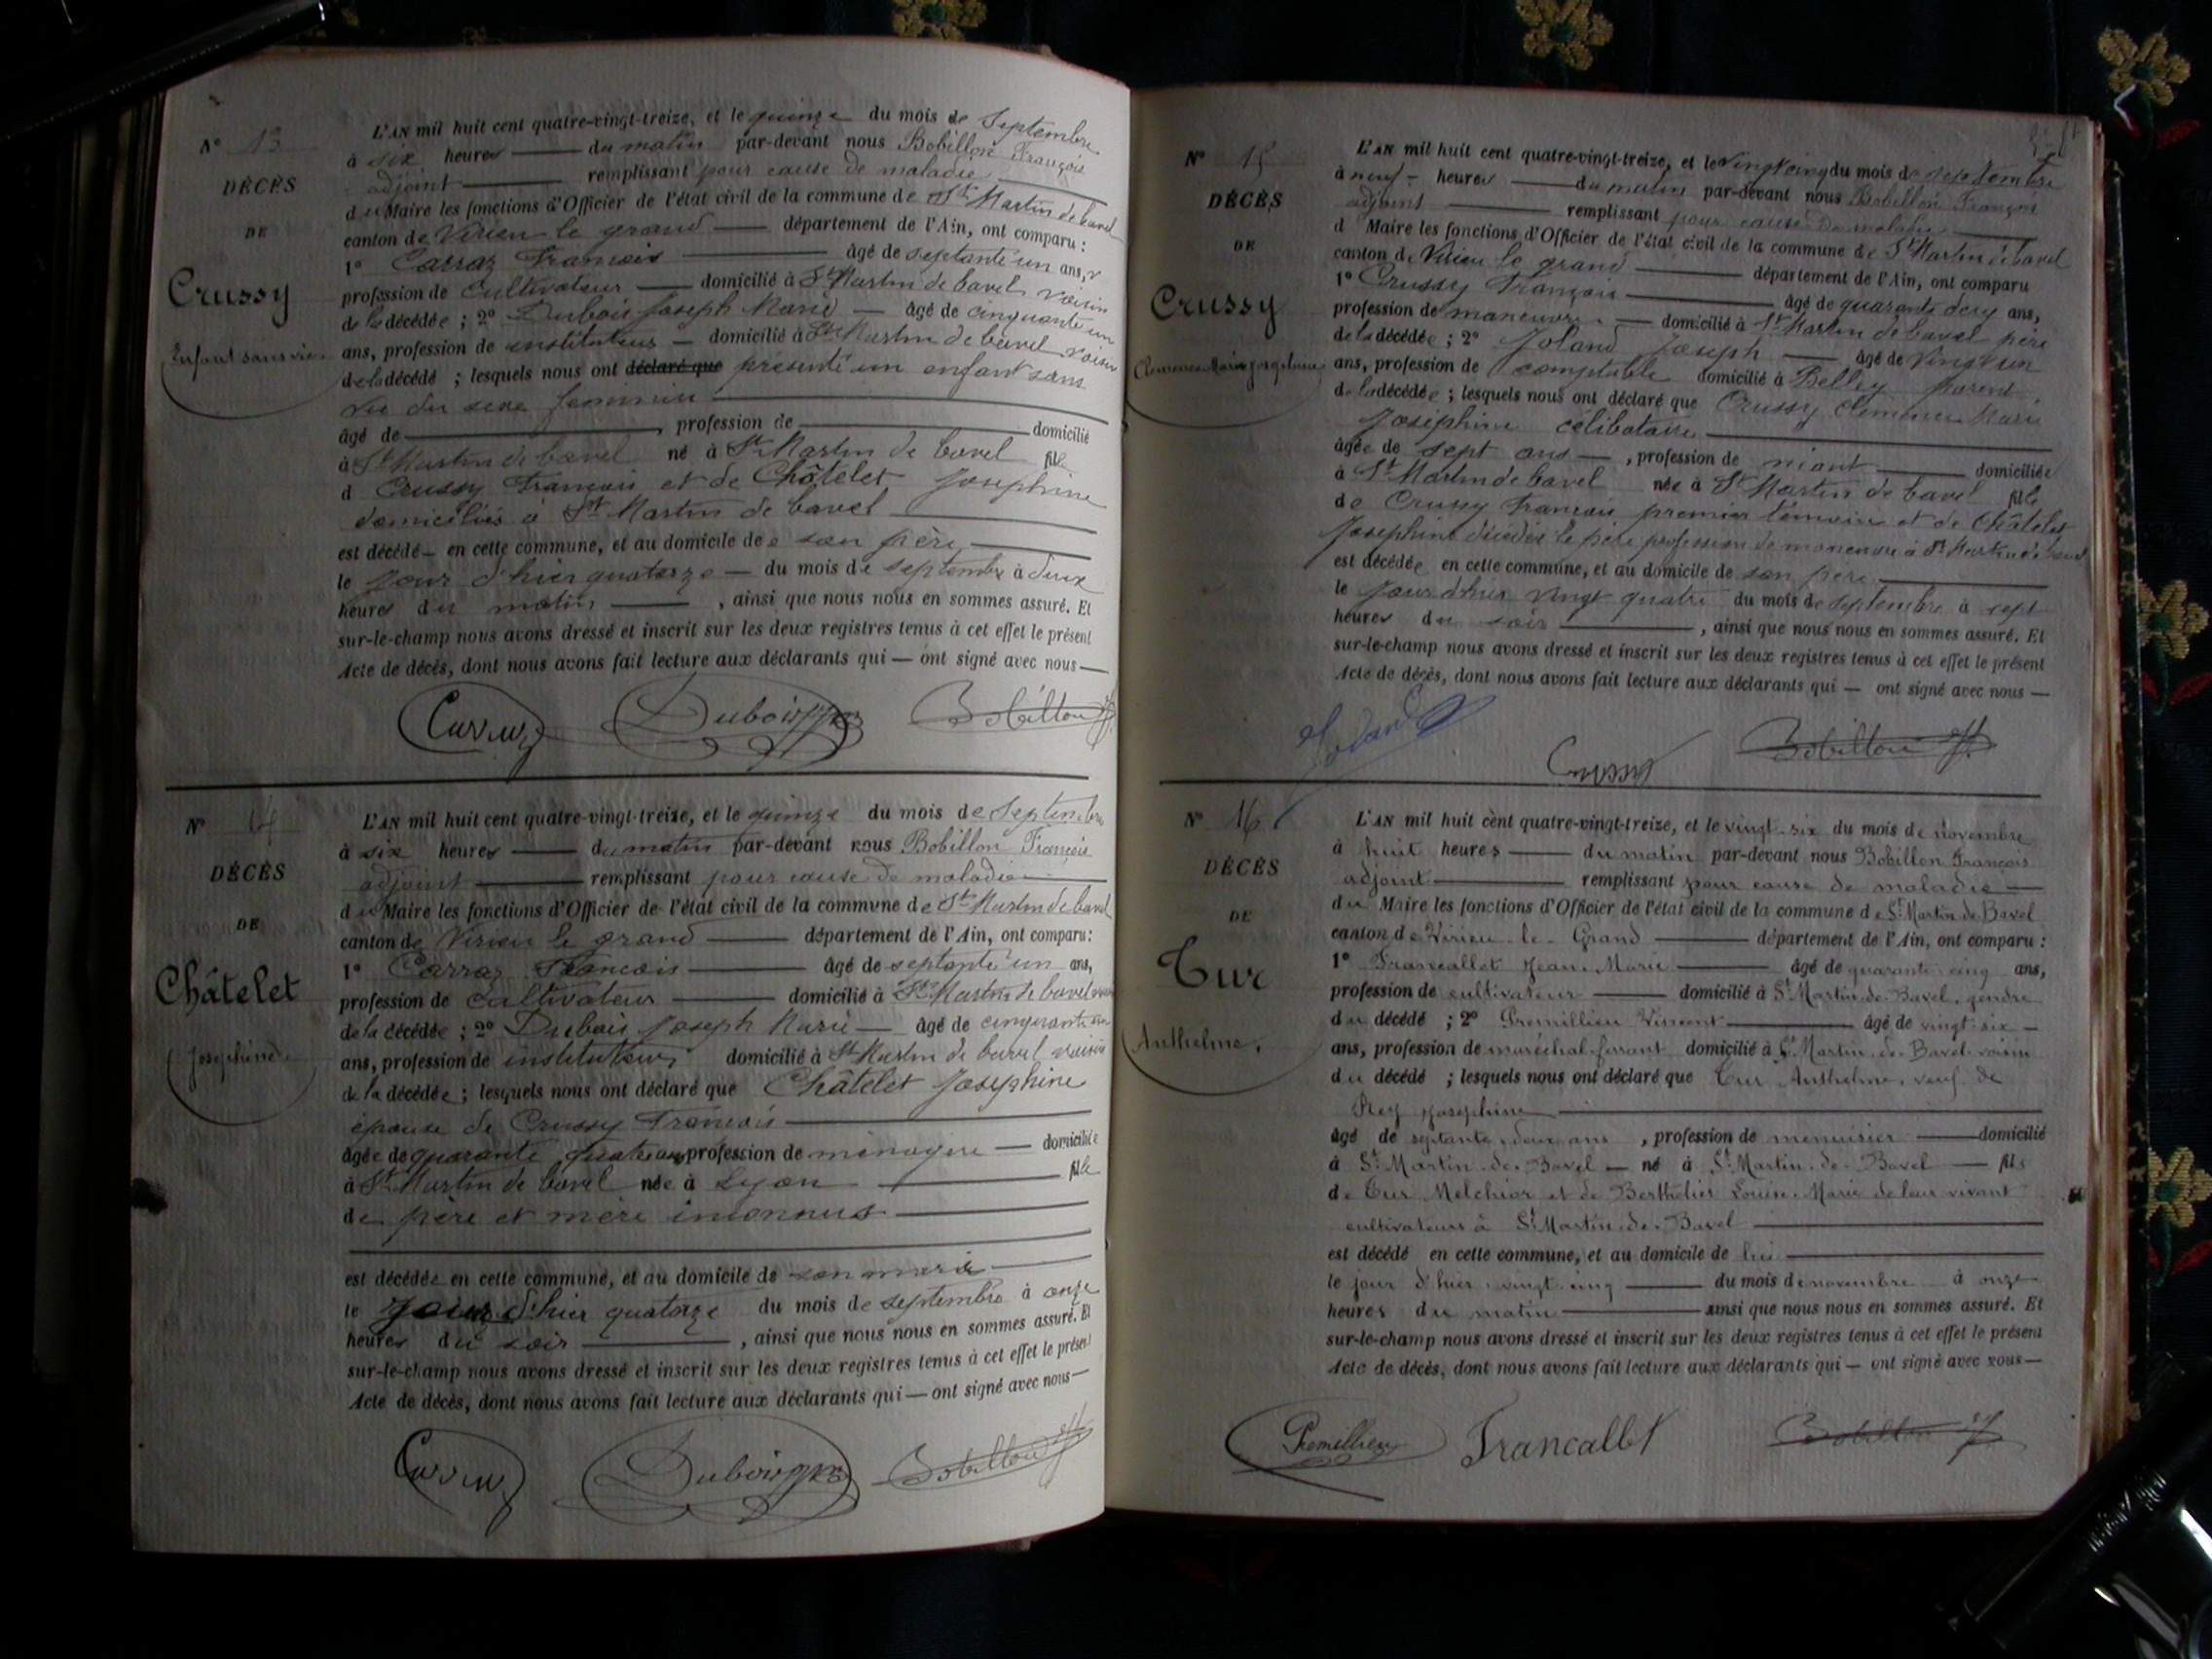 N° 13
DÉCÈS
DE
Crussy
Enfant sans vie
L'AN mil huit cent quatre-vingt-treize, et le quinze du mois de Septembre
à six heures du matin par-devant nous Bobillon François
adjoint remplissant pour cause de maladie
du Maire les fonctions d'Officier de l'état civil de la commune de St Martin de bavel
canton de Virieu le grand département de l'Ain, ont comparu :
1° Carraz François âgé de septante un ans,
profession de Cultivateur domicilié à St Martin de bavel voisin
de la décédée ; 2° Dubois Joseph Marie âgé de cinquante un
ans, profession de instituteur domicilié à St Martin de bavel voisin
de la décédé ; lesquels nous ont déclaré que présenté un enfant sans
vie du sexe féminin
âgé de , profession de domicilié
à St Martin de bavel né à St Martin de bavel fille
d Crussy François et de Châtelet Josephine
domiciliés à St Martin de bavel
est décédé en cette commune, et au domicile de son père
le jour d'hier quatorze du mois de septembre à deux
heures du matin , ainsi que nous nous en sommes assuré. Et
sur-le-champ nous avons dressé et inscrit sur les deux registres tenus à cet effet le présent
Acte de décès, dont nous avons fait lecture aux déclarants qui — ont signé avec nous —
Carraz Dubois Bobillon
N° 14
DÉCÈS
DE
Châtelet
Josephine
L'AN mil huit cent quatre-vingt-treize, et le quinze du mois de Septembre
à six heures du matin par-devant nous Bobillon François
adjoint remplissant pour cause de maladie
du Maire les fonctions d'Officier de l'état civil de la commune de St Martin de bavel
canton de Virieu le grand département de l'Ain, ont comparu :
1° Carraz François âgé de septante un ans,
profession de Cultivateur domicilié à St Martin de bavel
de la décédée ; 2° Dubois Joseph Marie âgé de cinquante un
ans, profession de instituteur domicilié à St Martin de bavel voisin
de la décédée ; lesquels nous ont déclaré que Châtelet Josephine
épouse de Crussy François
âgée de quarante quatre ans profession de ménagère domiciliée
à St Martin de bavel née à Lyon fille
de père et mère inconnus
est décédée en cette commune, et au domicile de son mari
le jour d'hier quatorze du mois de septembre à onze
heures du soir , ainsi que nous nous en sommes assuré. Et
sur-le-champ nous avons dressé et inscrit sur les deux registres tenus à cet effet le présent
Acte de décès, dont nous avons fait lecture aux déclarants qui — ont signé avec nous —
Carraz Dubois Bobillon
N° 15
DÉCÈS
DE
Crussy
Clémence Marie Josephine
L'AN mil huit cent quatre-vingt-treize, et le vingt cinq du mois de septembre
à neuf heures du matin par-devant nous Bobillon François
adjoint remplissant pour cause de maladie
d Maire les fonctions d'Officier de l'état civil de la commune de St Martin de bavel
canton de Virieu le grand département de l'Ain, ont comparu
1° Crussy François âgé de quarante deux ans,
profession de manœuvre domicilié à St Martin de bavel père
de la décédée ; 2° Joland Joseph âgé de vingt un
ans, profession de comptable domicilié à Belley parent
de la décédée ; lesquels nous ont déclaré que Crussy Clémence Marie
Joséphine célibataire
âgée de sept ans , profession de néant domiciliée
à St Martin de bavel née à St Martin de bavel fille
de Crussy François premier témoin et de Châtelet
Josephine décédée le père profession de manœuvre à St Martin de bavel
est décédée en cette commune, et au domicile de son père
le jour d'hier vingt quatre du mois de septembre à sept
heures du soir , ainsi que nous nous en sommes assuré. Et
sur-le-champ nous avons dressé et inscrit sur les deux registres tenus à cet effet le présent
Acte de décès, dont nous avons fait lecture aux déclarants qui — ont signé avec nous —
Joland Crussy Bobillon
N° 16
DÉCÈS
DE
Tur
Anthelme.
L'AN mil huit cent quatre-vingt-treize, et le vingt-six du mois de novembre
à huit heures du matin par-devant nous Bobillon François
adjoint remplissant pour cause de maladie
du Maire les fonctions d'Officier de l'état civil de la commune de St Martin-de-Bavel
canton de Virieu-le-Grand département de l'Ain, ont comparu :
1° Francallet Jean-Marie âgé de quarante cinq ans,
profession de cultivateur domicilié à St Martin-de-Bavel, gendre
du décédé ; 2° Premillieu Vincent âgé de vingt-six
ans, profession de maréchal-ferrant domicilié à St Martin-de-Bavel voisin
du décédé ; lesquels nous ont déclaré que Tur Anthelme, veuf de
Rey Josephine
âgé de septante-deux ans , profession de menuisier domicilié
à St Martin-de-Bavel né à St Martin-de-Bavel fils
de Tur Melchior et de Berthelier Louise-Marie de leur vivant
cultivateurs à St Martin-de-Bavel
est décédé en cette commune, et au domicile de lui
le jour d'hier vingt-cinq du mois de novembre à onze
heures du matin ainsi que nous nous en sommes assuré. Et
sur-le-champ nous avons dressé et inscrit sur les deux registres tenus à cet effet le présent
Acte de décès, dont nous avons fait lecture aux déclarants qui — ont signé avec nous —
Premillieu Francallet Bobillon